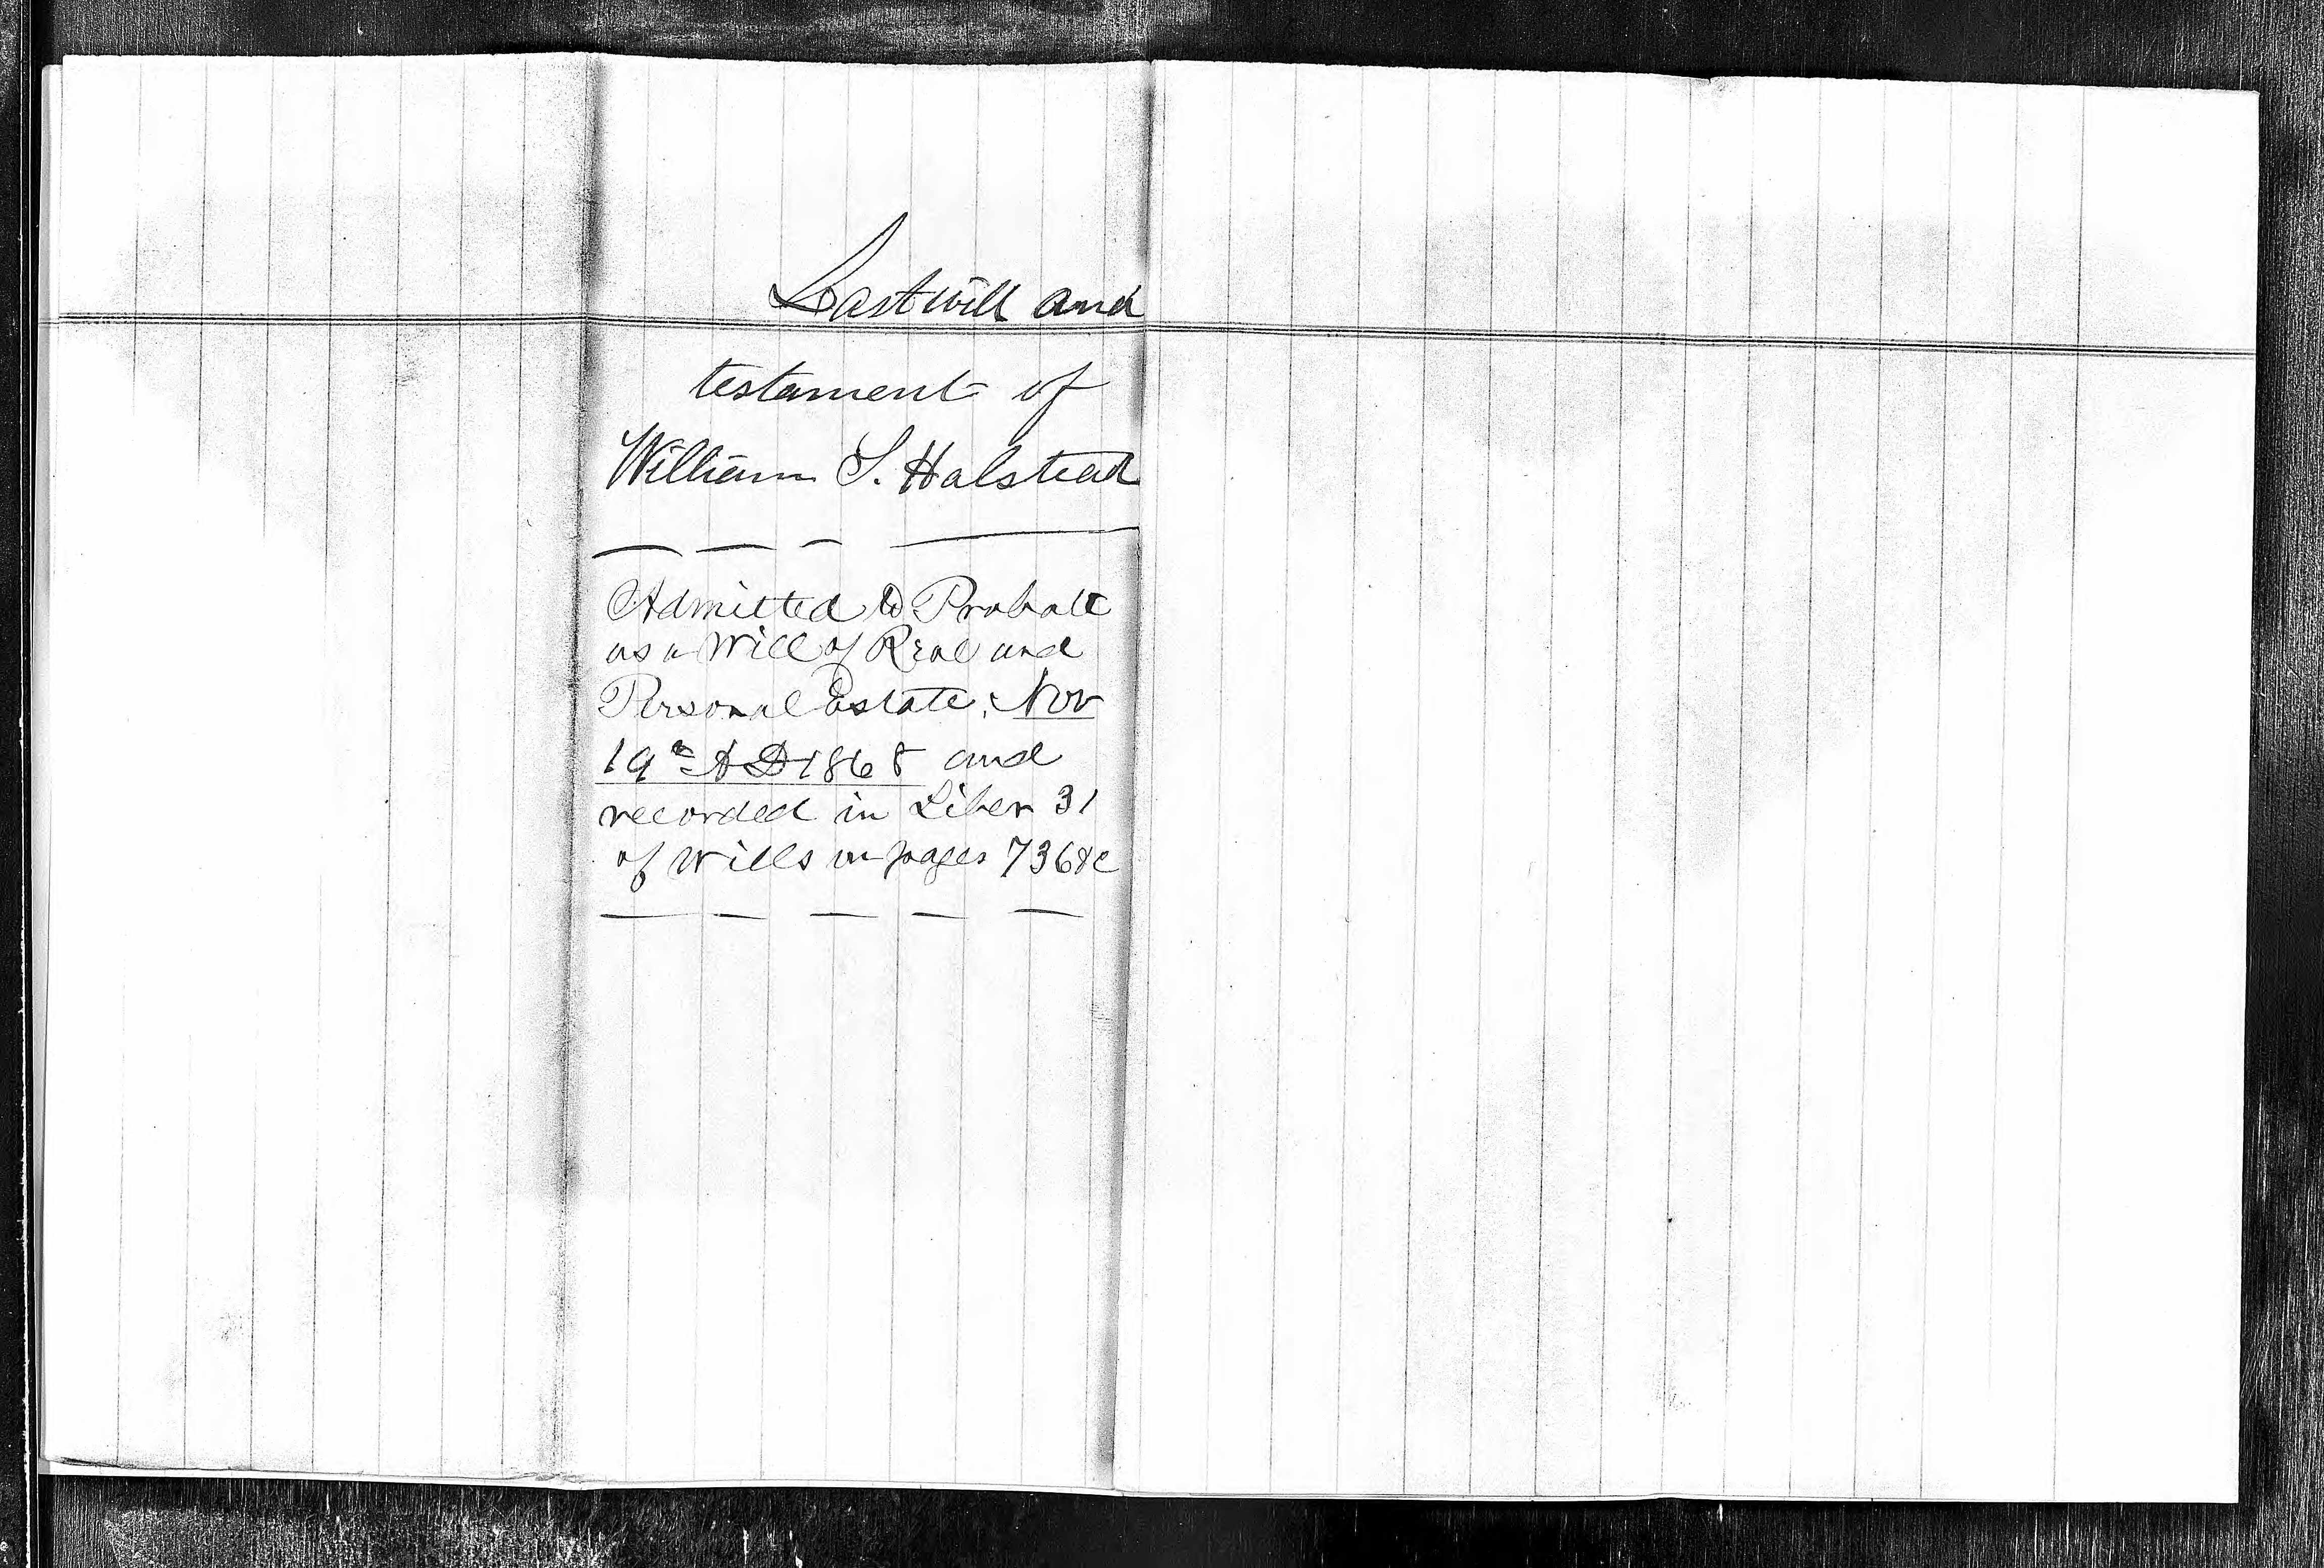 Last will and
testament of
William S. Halstead
Admitted to Probate
as a Will of Real and
Personal Estate, Nov
19th A D 1868 and
recorded in Liber 31
of Wills on pages 736 &c